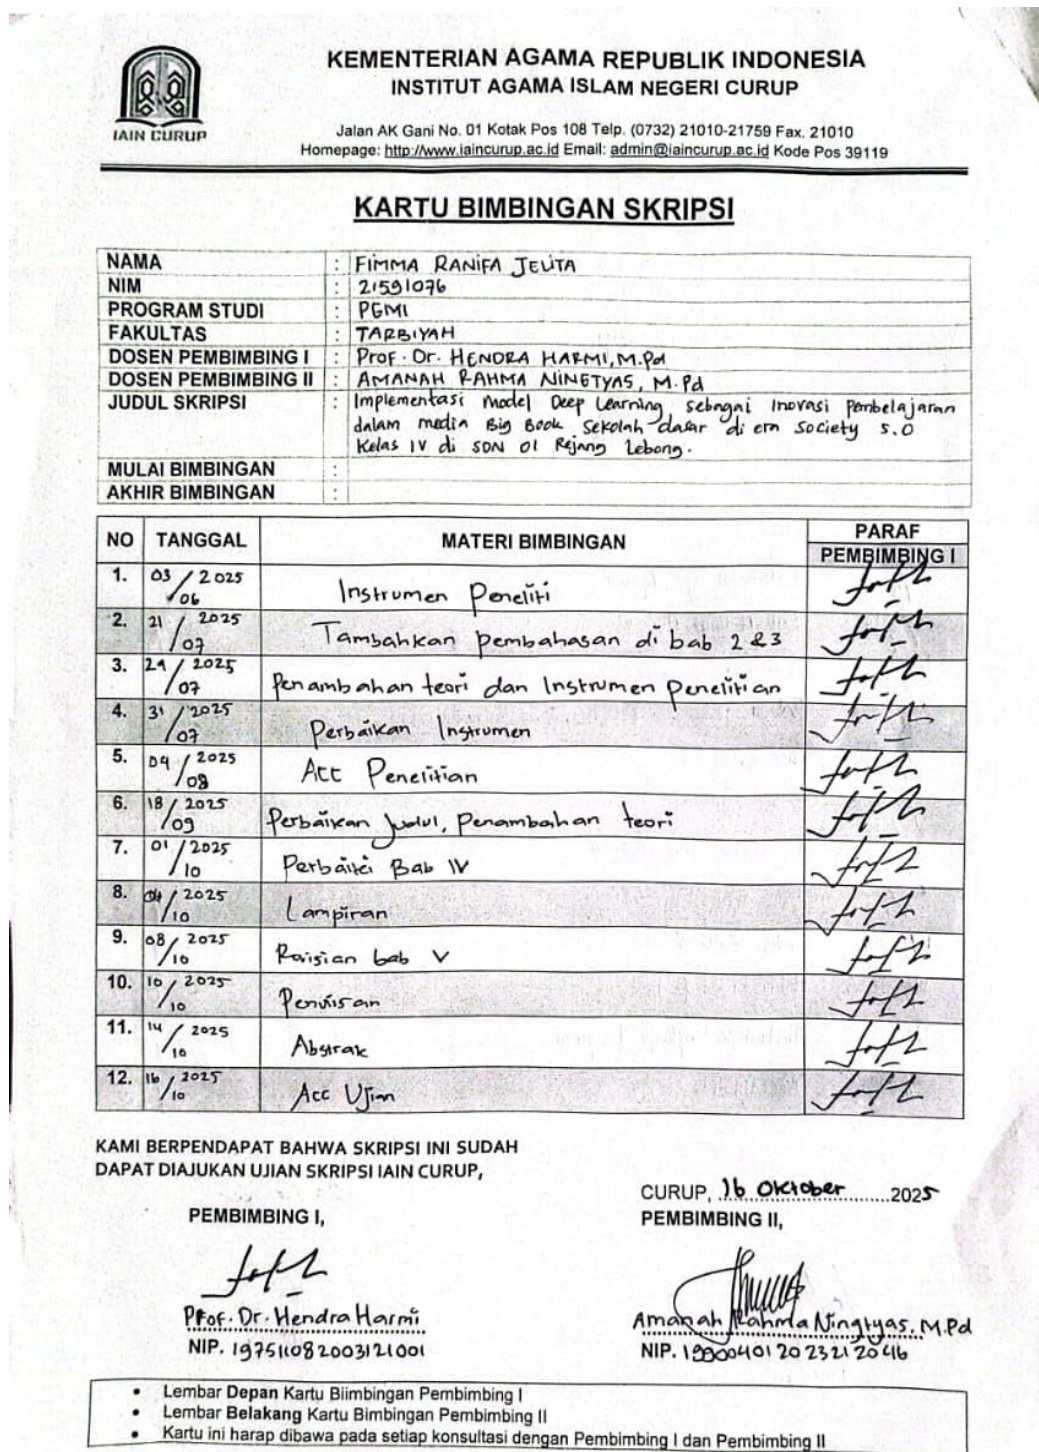 KEMENTERIAN AGAMA REPUBLIK INDONESIA
INSTITUT AGAMA ISLAM NEGERI CURUP
IAIN CURUP
Jalan AK Gani No. 01 Kotak Pos 108 Telp. (0732) 21010-21759 Fax. 21010
Homepage: http://www.iaincurup.ac.id Email: admin@iaincurup.ac.id Kode Pos 39119
KARTU BIMBINGAN SKRIPSI
NAMA : FIMMA RANIFA JELITA
NIM : 21591076
PROGRAM STUDI : PGMI
FAKULTAS : TARBIYAH
DOSEN PEMBIMBING I : Prof. Dr. HENDRA HARMI, M.Pd
DOSEN PEMBIMBING II : AMANAH RAHMA NINGTYAS, M.Pd
JUDUL SKRIPSI : Implementasi model Deep Learning sebagai Inovasi Pembelajaran
dalam media Big Book Sekolah dasar di era Society 5.0
Kelas IV di SDN 01 Rejang Lebong.
MULAI BIMBINGAN :
AKHIR BIMBINGAN :
NO TANGGAL MATERI BIMBINGAN PARAF
PEMBIMBING I
1. 03/06 2025 Instrumen Peneliti
2. 21/07 2025 Tambahkan pembahasan di bab 2 & 3
3. 29/07 2025 Penambahan teori dan Instrumen penelitian
4. 31/07 2025 Perbaikan Instrumen
5. 04/08 2025 Acc Penelitian
6. 18/09 2025 Perbaikan Judul, Penambahan teori
7. 01/10 2025 Perbaiki Bab IV
8. 04/10 2025 Lampiran
9. 08/10 2025 bab V
10. 10/10 2025
11. 14/10 2025 Abstrak
12. 16/10 2025 Acc Ujian
KAMI BERPENDAPAT BAHWA SKRIPSI INI SUDAH
DAPAT DIAJUKAN UJIAN SKRIPSI IAIN CURUP,
CURUP, 16 Oktober 2025
PEMBIMBING I,
PEMBIMBING II,
Prof. Dr. Hendra Harmi
NIP. 197511082003121001
Amanah Rahma Ningtyas, M.Pd
NIP. 199004012023212046
• Lembar Depan Kartu Biimbingan Pembimbing I
• Lembar Belakang Kartu Bimbingan Pembimbing II
• Kartu ini harap dibawa pada setiap konsultasi dengan Pembimbing I dan Pembimbing II